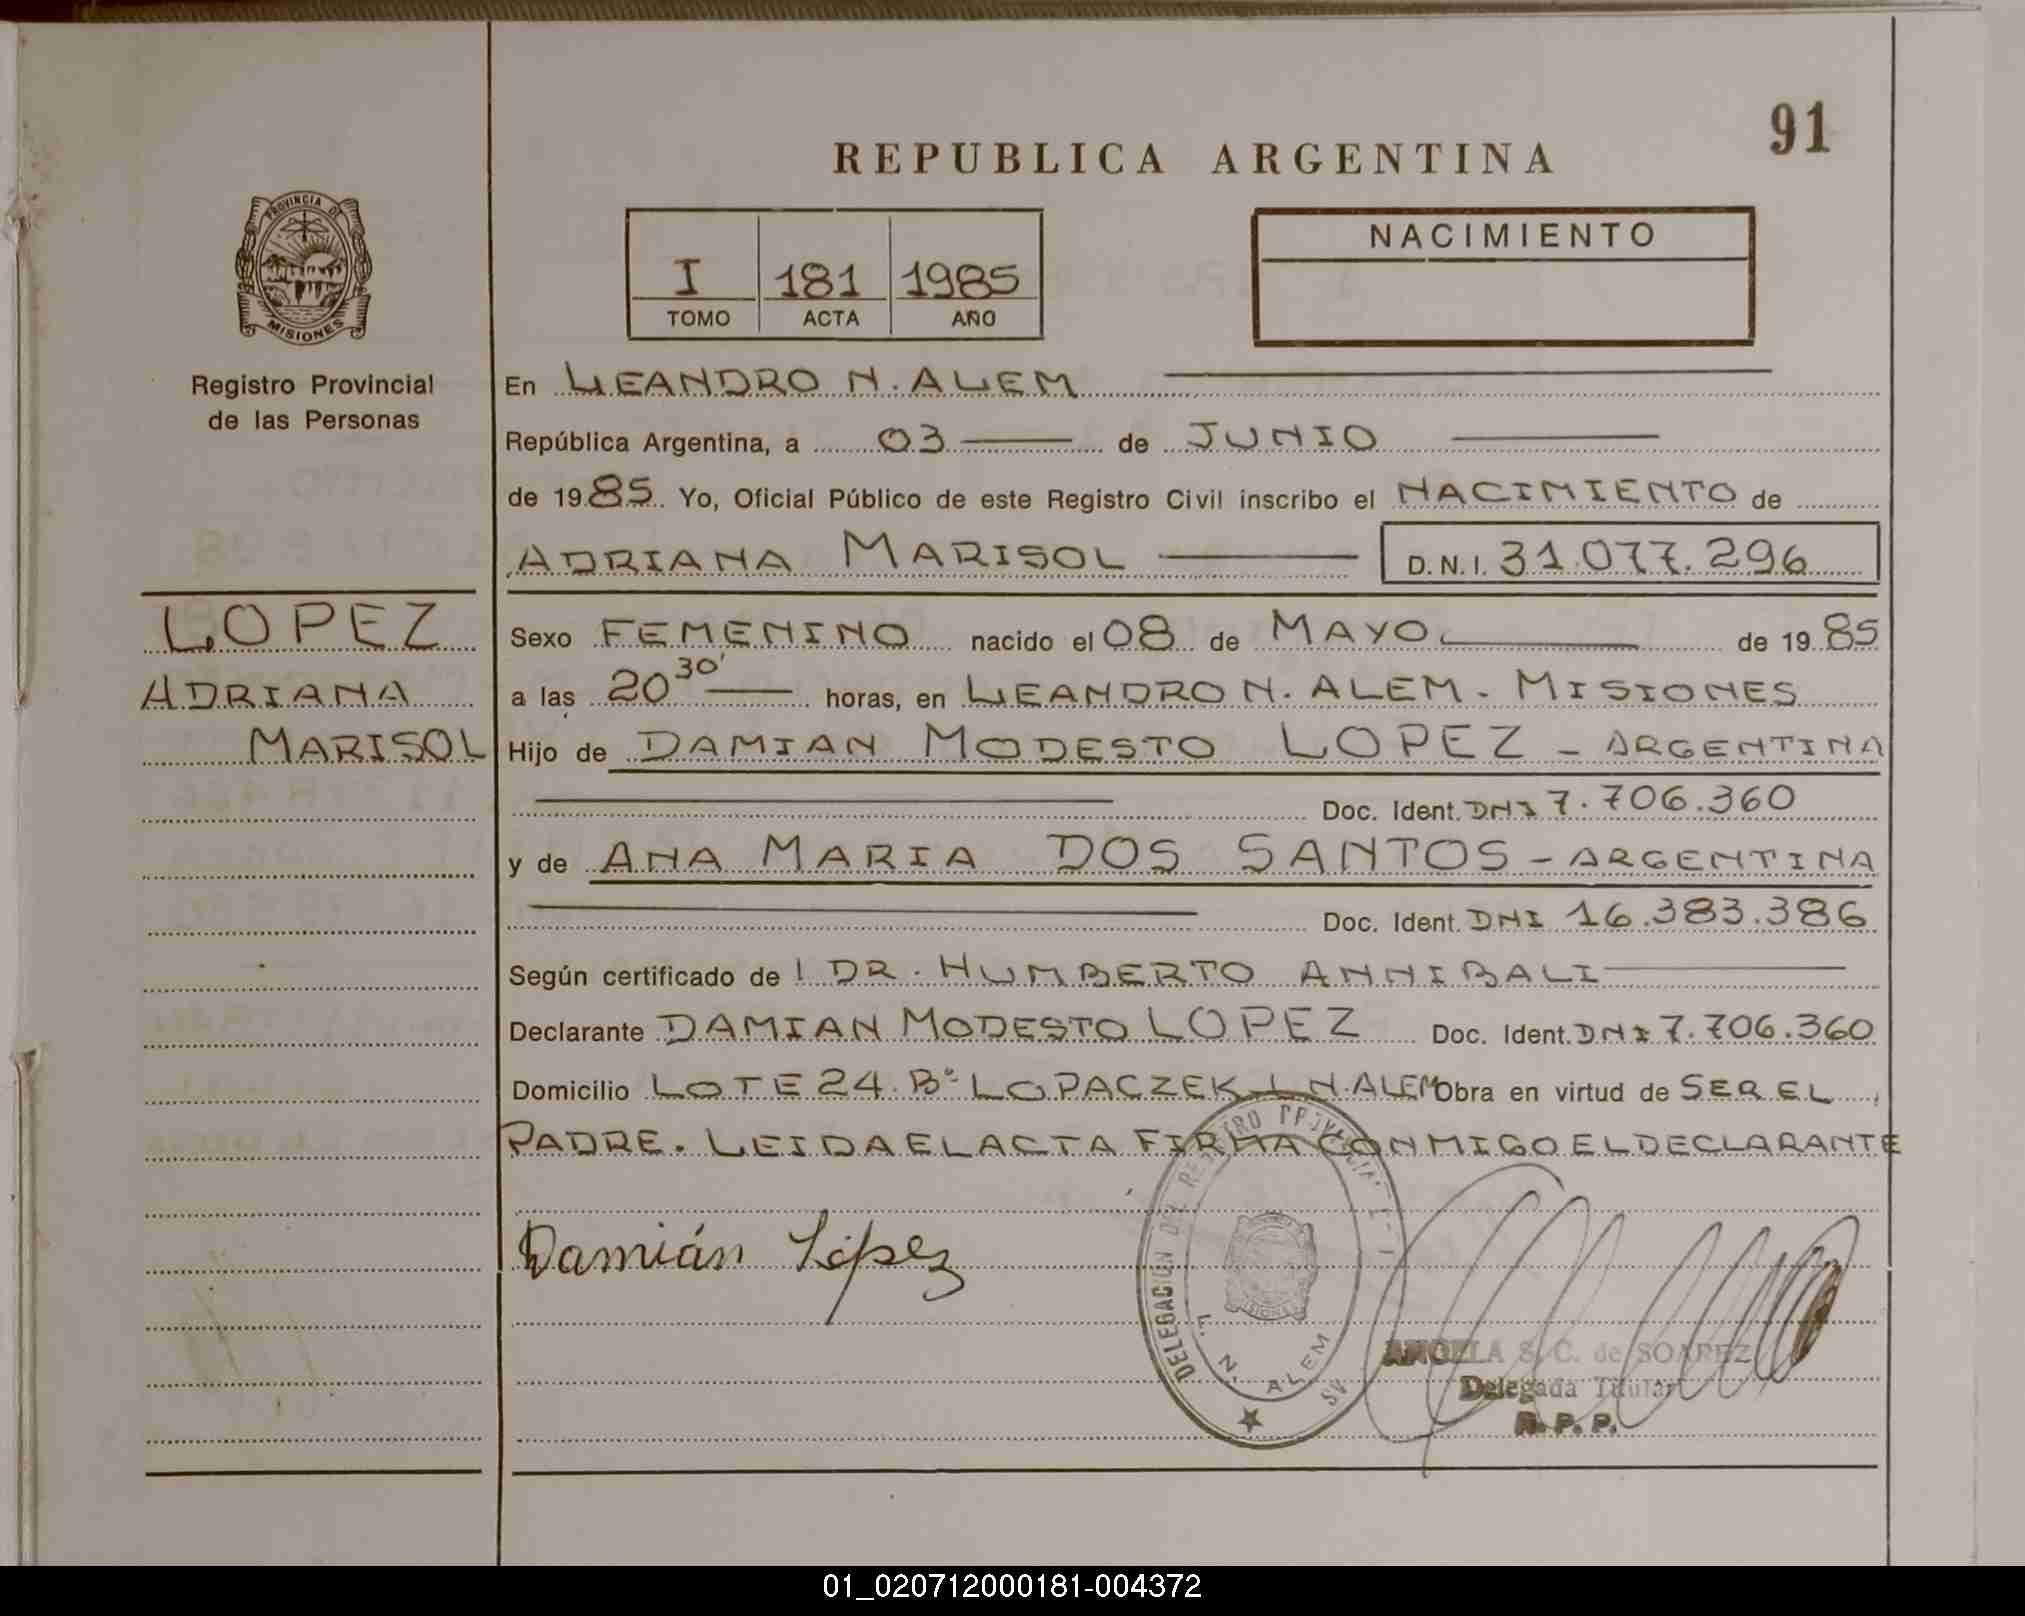 91
REPUBLICA ARGENTINA
PROVINCIA DE
MISIONES
Registro Provincial
de las Personas
I 181 1985
TOMO ACTA AÑO
NACIMIENTO
En LEANDRO N. ALEM
República Argentina, a 03 de JUNIO
de 1985 Yo, Oficial Público de este Registro Civil inscribo el NACIMIENTO de
ADRIANA MARISOL D.N.I. 31.077.296
LOPEZ
ADRIANA
MARISOL
Sexo FEMENINO nacido el 08 de MAYO de 1985
a las 20 30' horas, en LEANDRO N. ALEM. MISIONES
Hijo de DAMIAN MODESTO LOPEZ - ARGENTINA
Doc. Ident. DNI 7.706.360
y de ANA MARIA DOS SANTOS - ARGENTINA
Doc. Ident. DNI 16.383.386
Según certificado de DR. HUMBERTO ANNIBALI
Declarante DAMIAN MODESTO LOPEZ Doc. Ident. DNI 7.706.360
Domicilio LOTE 24. Bº LOPACZEK L.N.ALEM Obra en virtud de SER EL
PADRE. LEIDA EL ACTA FIRMA CONMIGO EL DECLARANTE
Damián López
DELEGACION DEL REGISTRO PROVINCIAL
L. N. ALEM
ANGELA S. C. de SOAREZ
Delegada Titular
R. P. P.
01_020712000181-004372